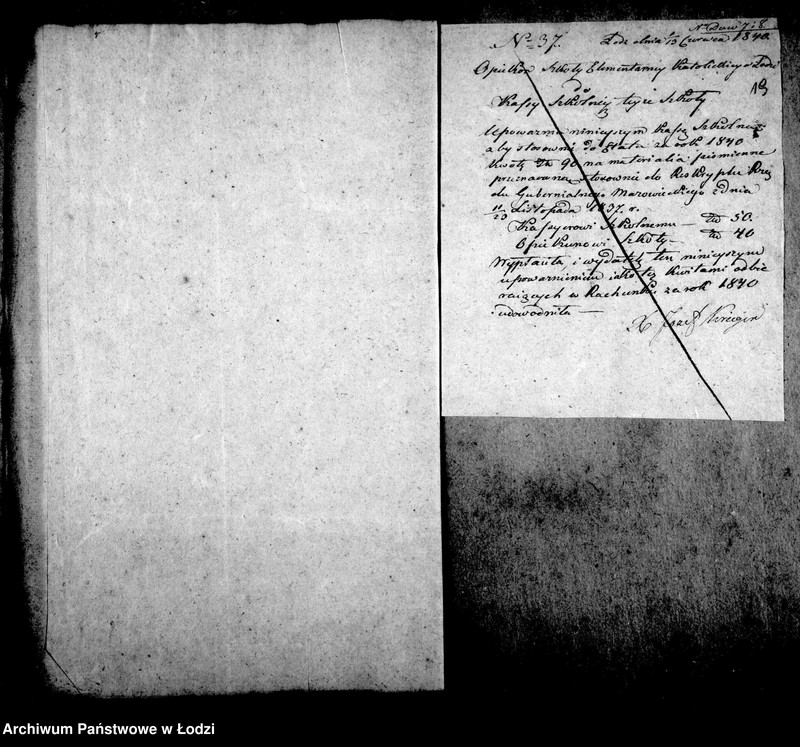 Nr Dow 7 i 8
No 37. Łódź dnia 1/13 Czerwca 1840
Opiekun Szkoły Elementarnej Katolickiej w Łodzi
19
do
Kassy Szkolnej tejże Szkoły
Upoważnia niniejszym Kassę Szkolną
aby stosownie do Etatu za rok 1840
kwotę Złp 90 na materialia piśmienne
przeznaczoną, stosownie do Reskryptu Rzą
du Gubernialnego Mazowieckiego z dnia
11/23 Listopada 1837. r.
Kassyerowi Szkolnemu — Złp 50.
Opiekunowi Szkoły — Złp 40
Wypłaciła i wydatek ten niniejszym
upoważnieniem jako też kwitami odbie
rających w Rachunku za rok 1840
udowodniła —
X Józef Kreiger
Archiwum Państwowe w Łodzi